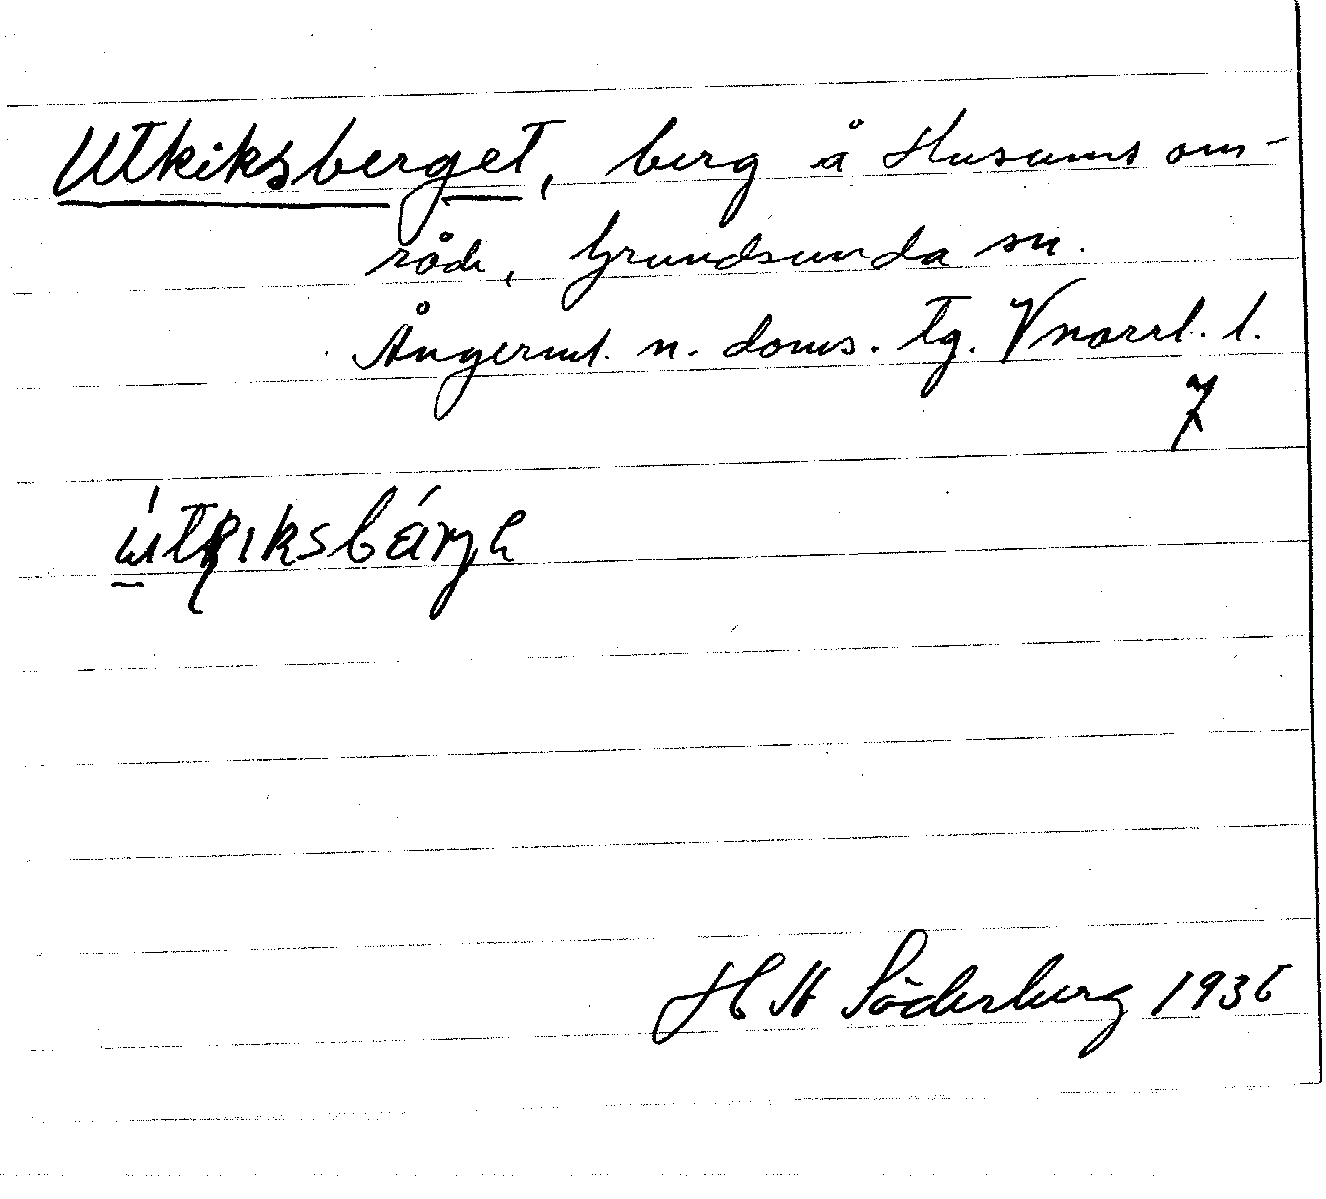 Utkiksberget, berg å Husums om-
råde, Grundsunda sn.
Ångerml. n. doms. tg. Vnorrl. l.
7
Söderberg 1936